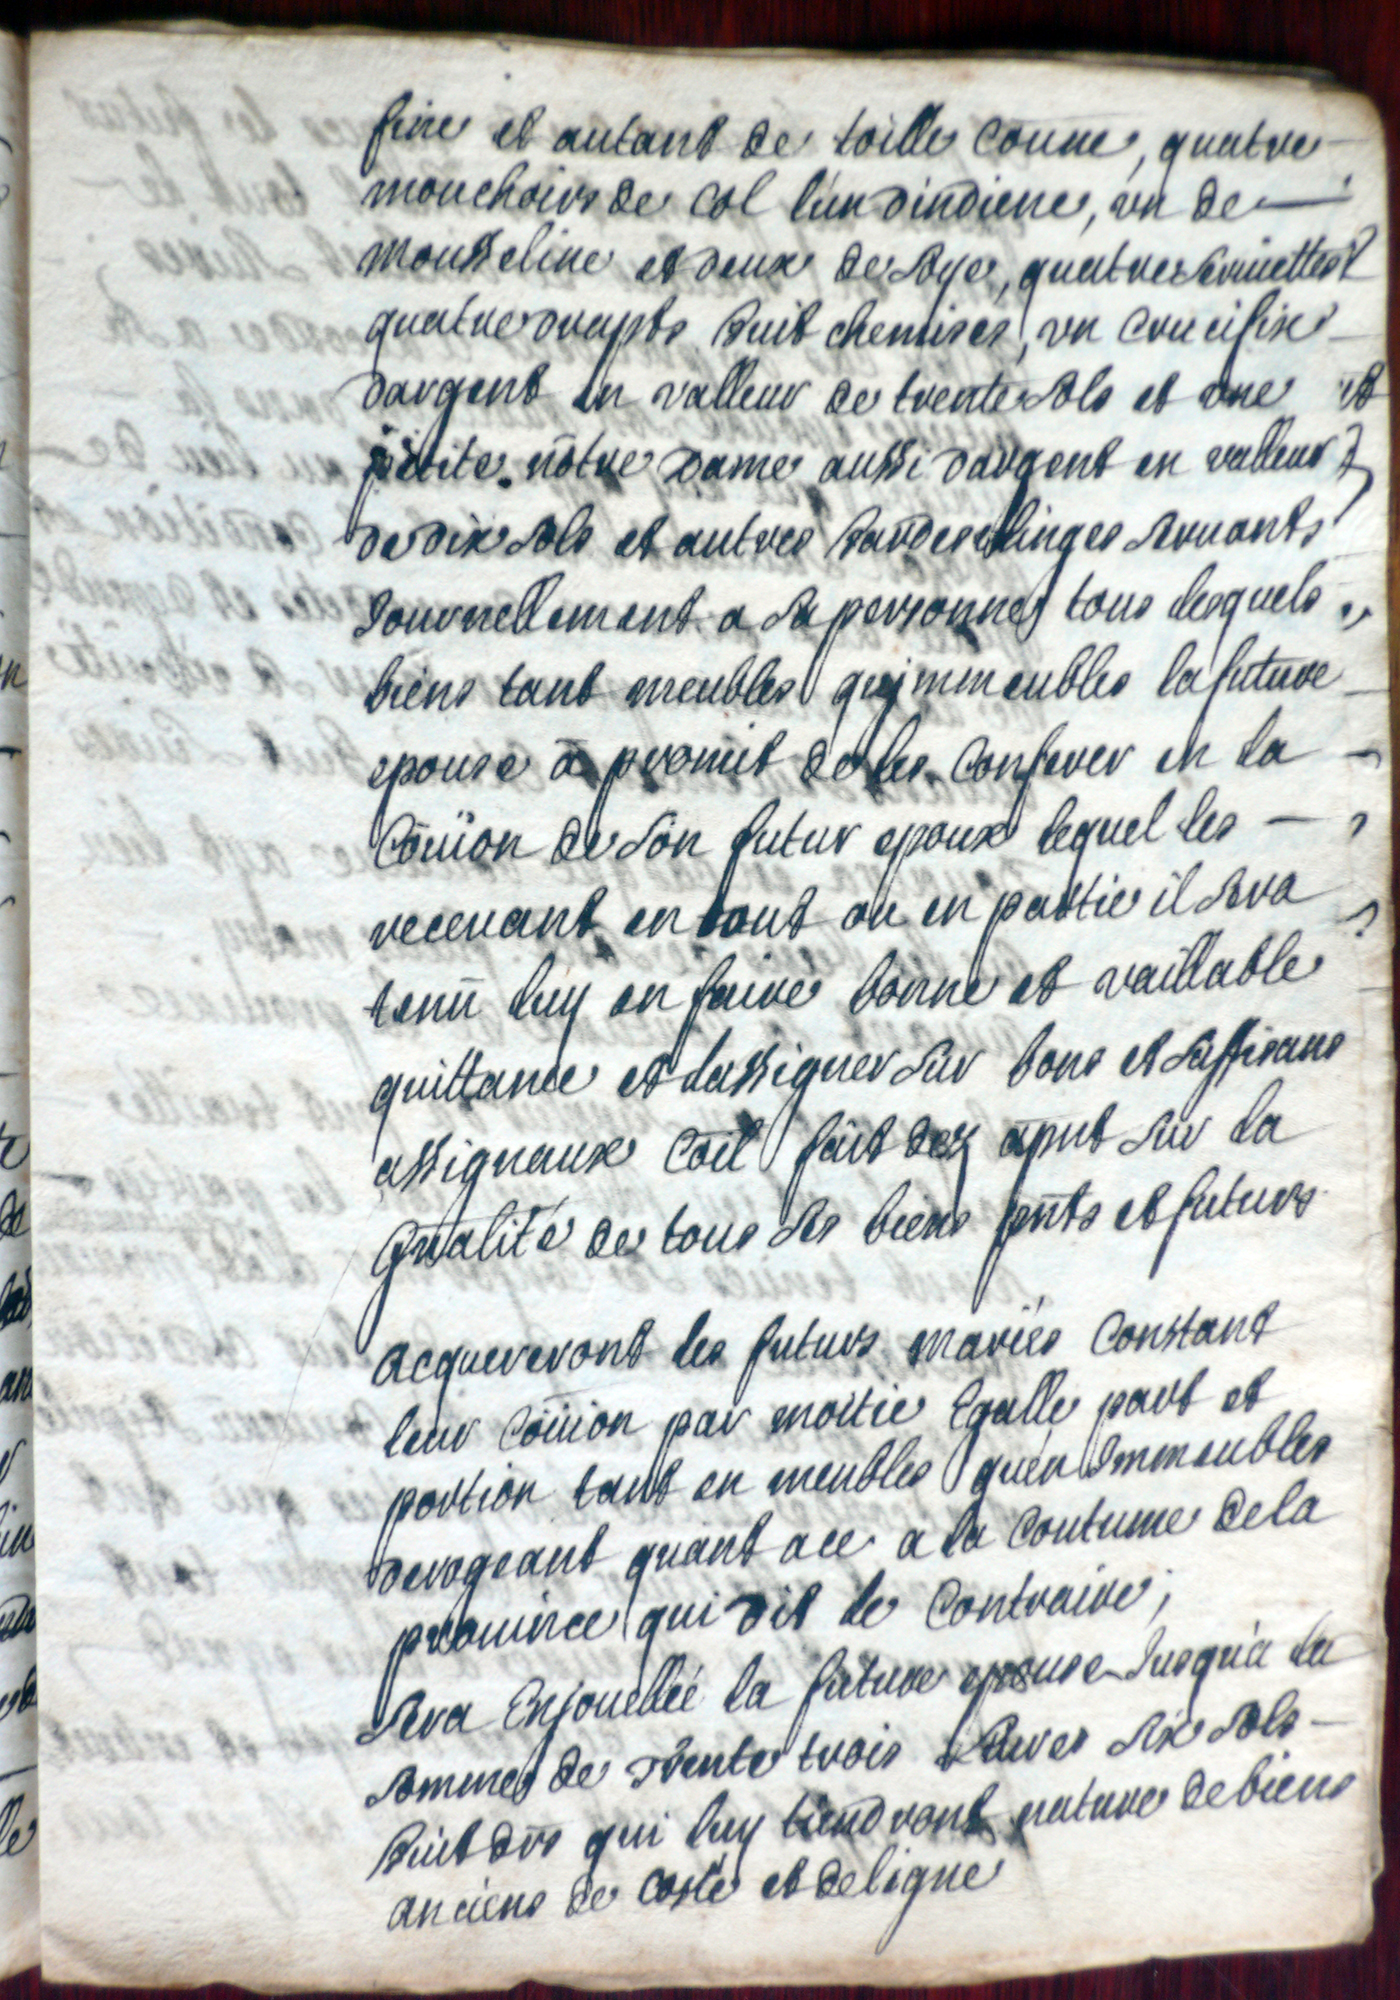 fine et autant de toille comne, quatre
mouchoirs de col l'un dindiene, un de
mousseline et deux de soye, quatre serviettes
quatre drapts huit chemises, un crucifix
dargent en valleur de trente sols et une
petite notre dame aussi dargent en valleur
de dix sols et autres hardes et linges servants
Journellement a sa personne, tous lesquels
biens tant meubles qujmmeubles la future
epouse a promit de les Conferer en la
Coũion de son futur epoux lequel les
recevant en tout ou en partie il sera
tenu luy en faire bonne et vaillable
quittance et lassigner sur bons et suffisans
assignaux Coẽ il fait dez apnt sur la
gñalité de tous ses biens pñts et futurs
acquereront les futurs mariés Constant
leur Coũion par moitie Egalle part et
portion tant en meubles quen Immeubles
derogeant quant a ce a la Coutume de la
province qui dit le Contraire;
sera Enjouellée la future epouse Jusqu'a la
somme de trente trois Livres six sols
huit drs qui luy tiendront nature de biens
anciens de costé et de ligne